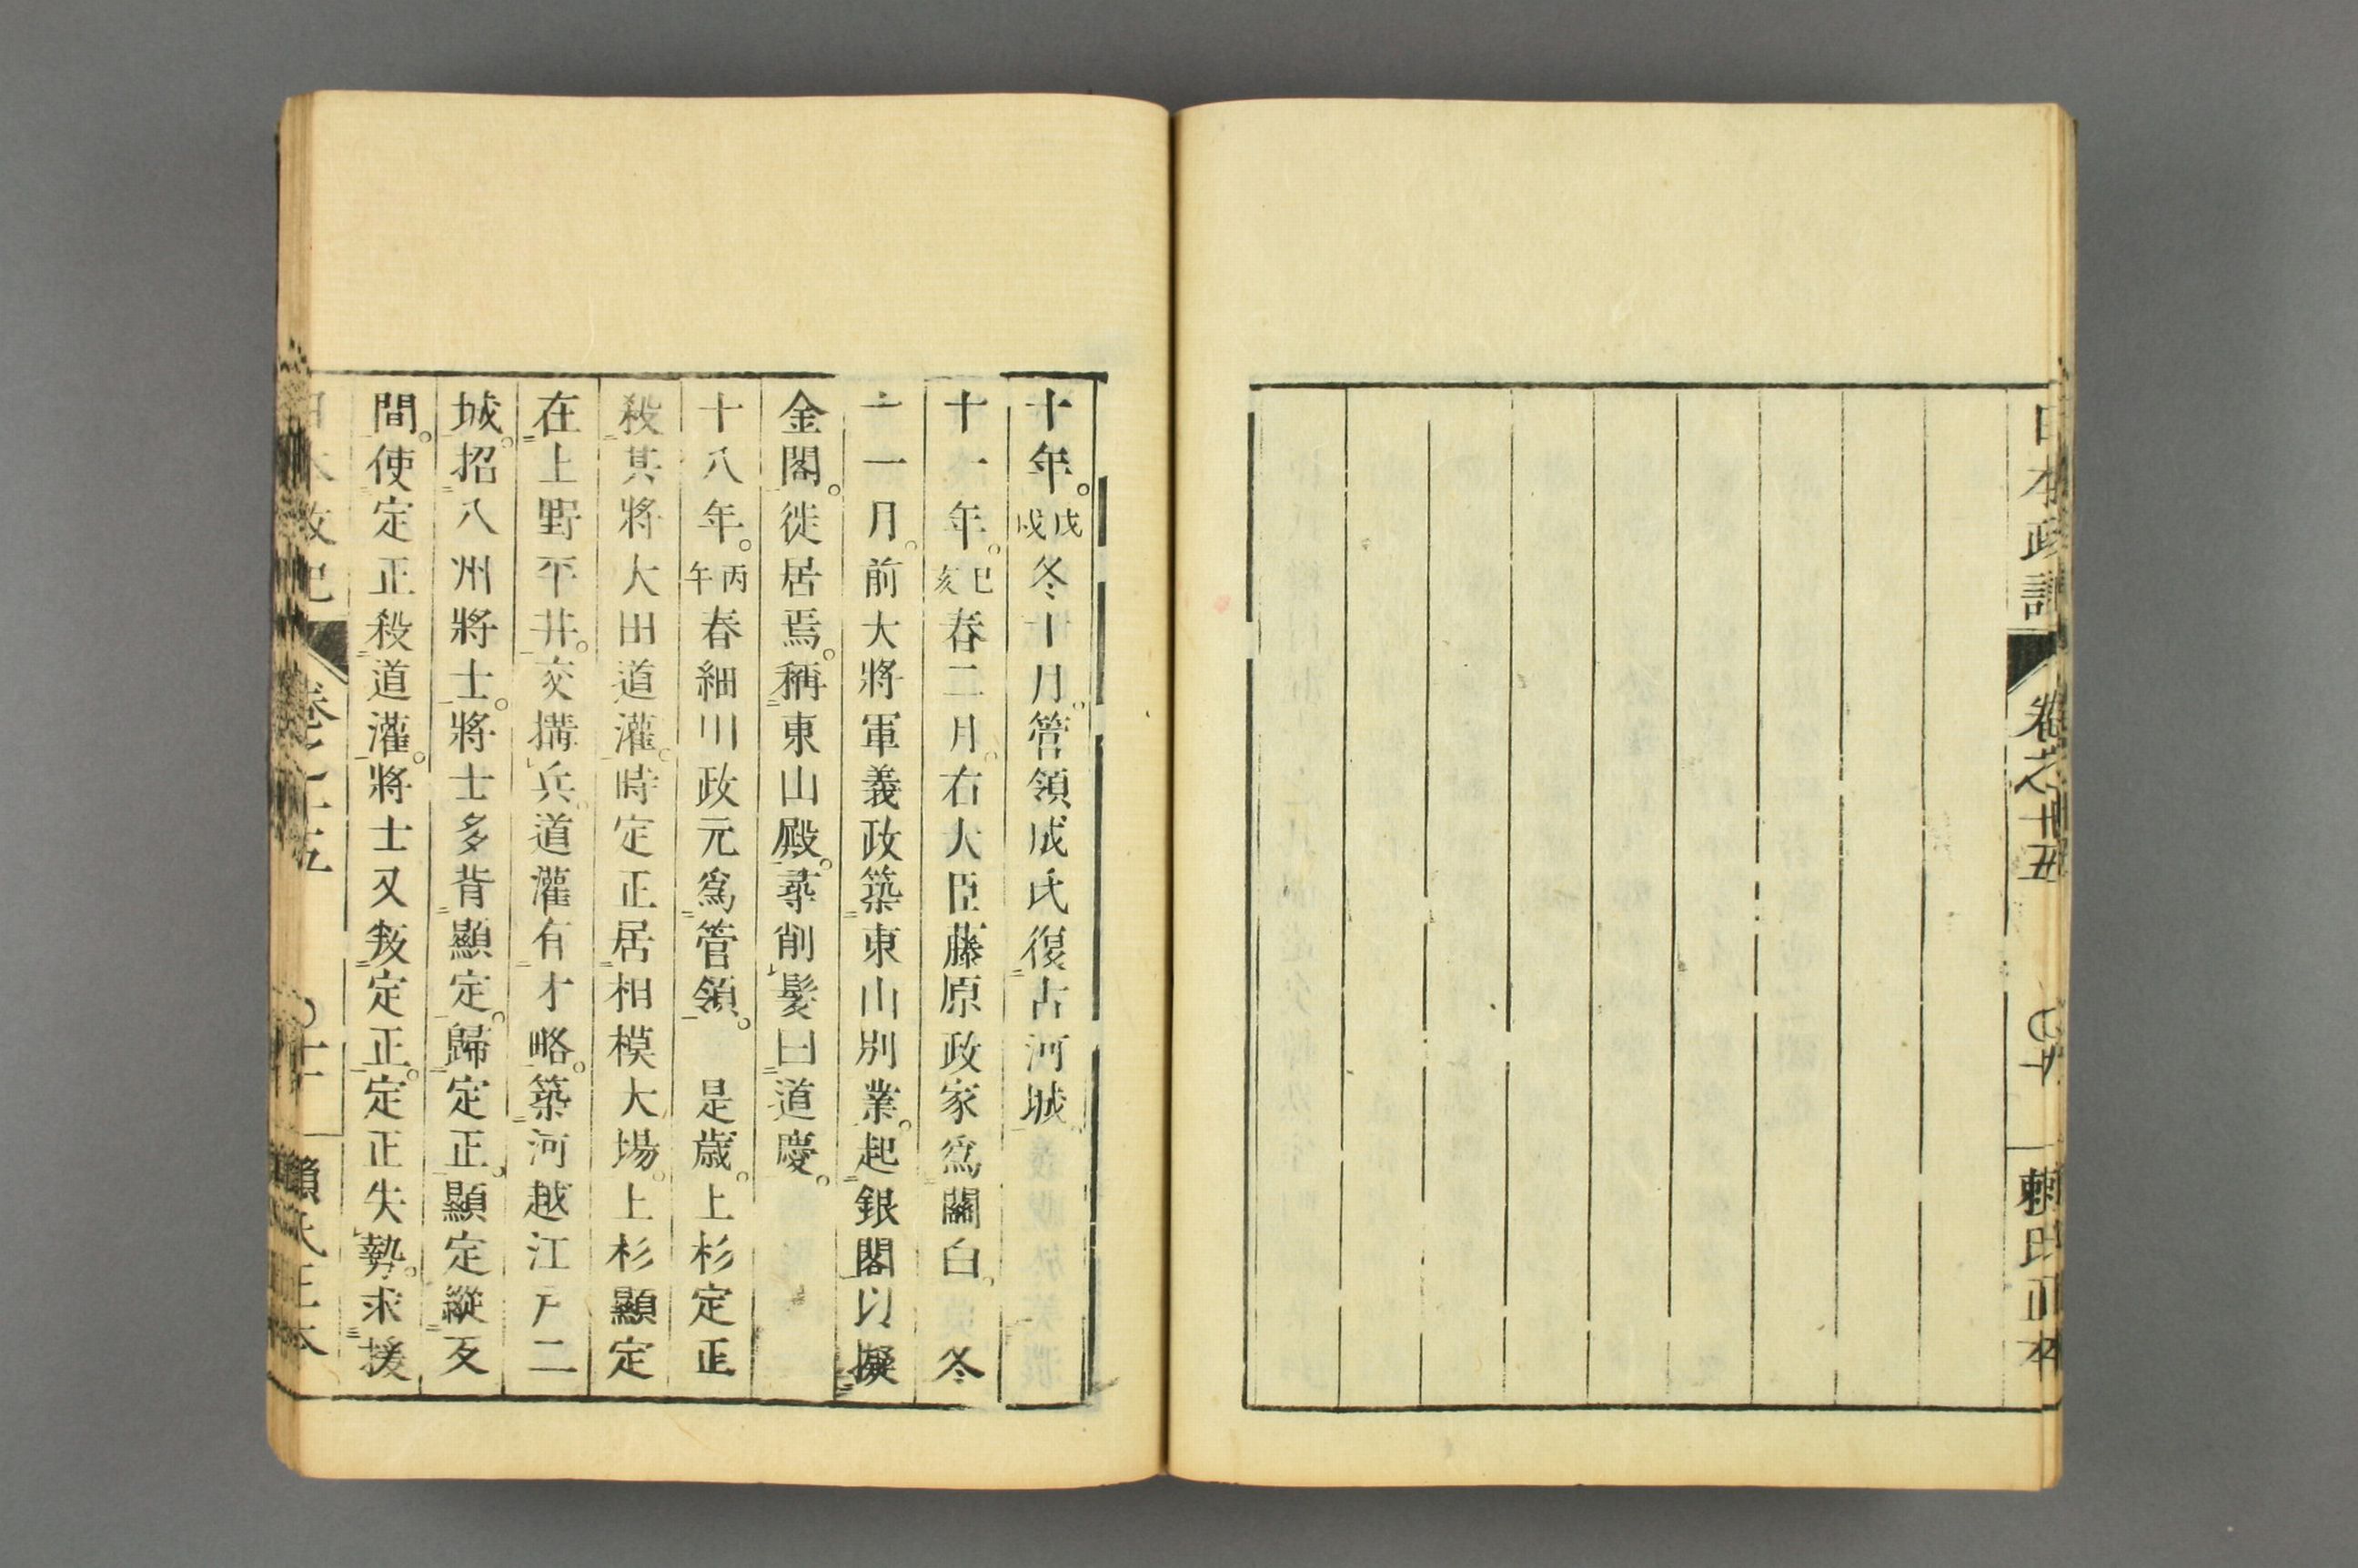 日本政記 卷之十五 賴氏正本
十年。戊戌冬十月。管領成氏復古河城。
十一年。己亥春二月。右大臣藤原政家爲關白。 冬
十一月。前大將軍義政築東山別業。起銀閣以擬
金閣。徙居焉。稱東山殿。尋削髮曰道慶。
十八年。丙午春細川政元爲管領。 是歲。上杉定正
殺其將大田道灌。時定正居相模大場。上杉顯定
在上野平井。交搆兵。道灌有才略。築河越江戶二
城。招八州將士。將士多背顯定。歸定正。顯定縱反
間。使定正殺道灌。將士又叛定正。定正失勢。求援
日本政記 卷之十五 〇十一 賴氏正本